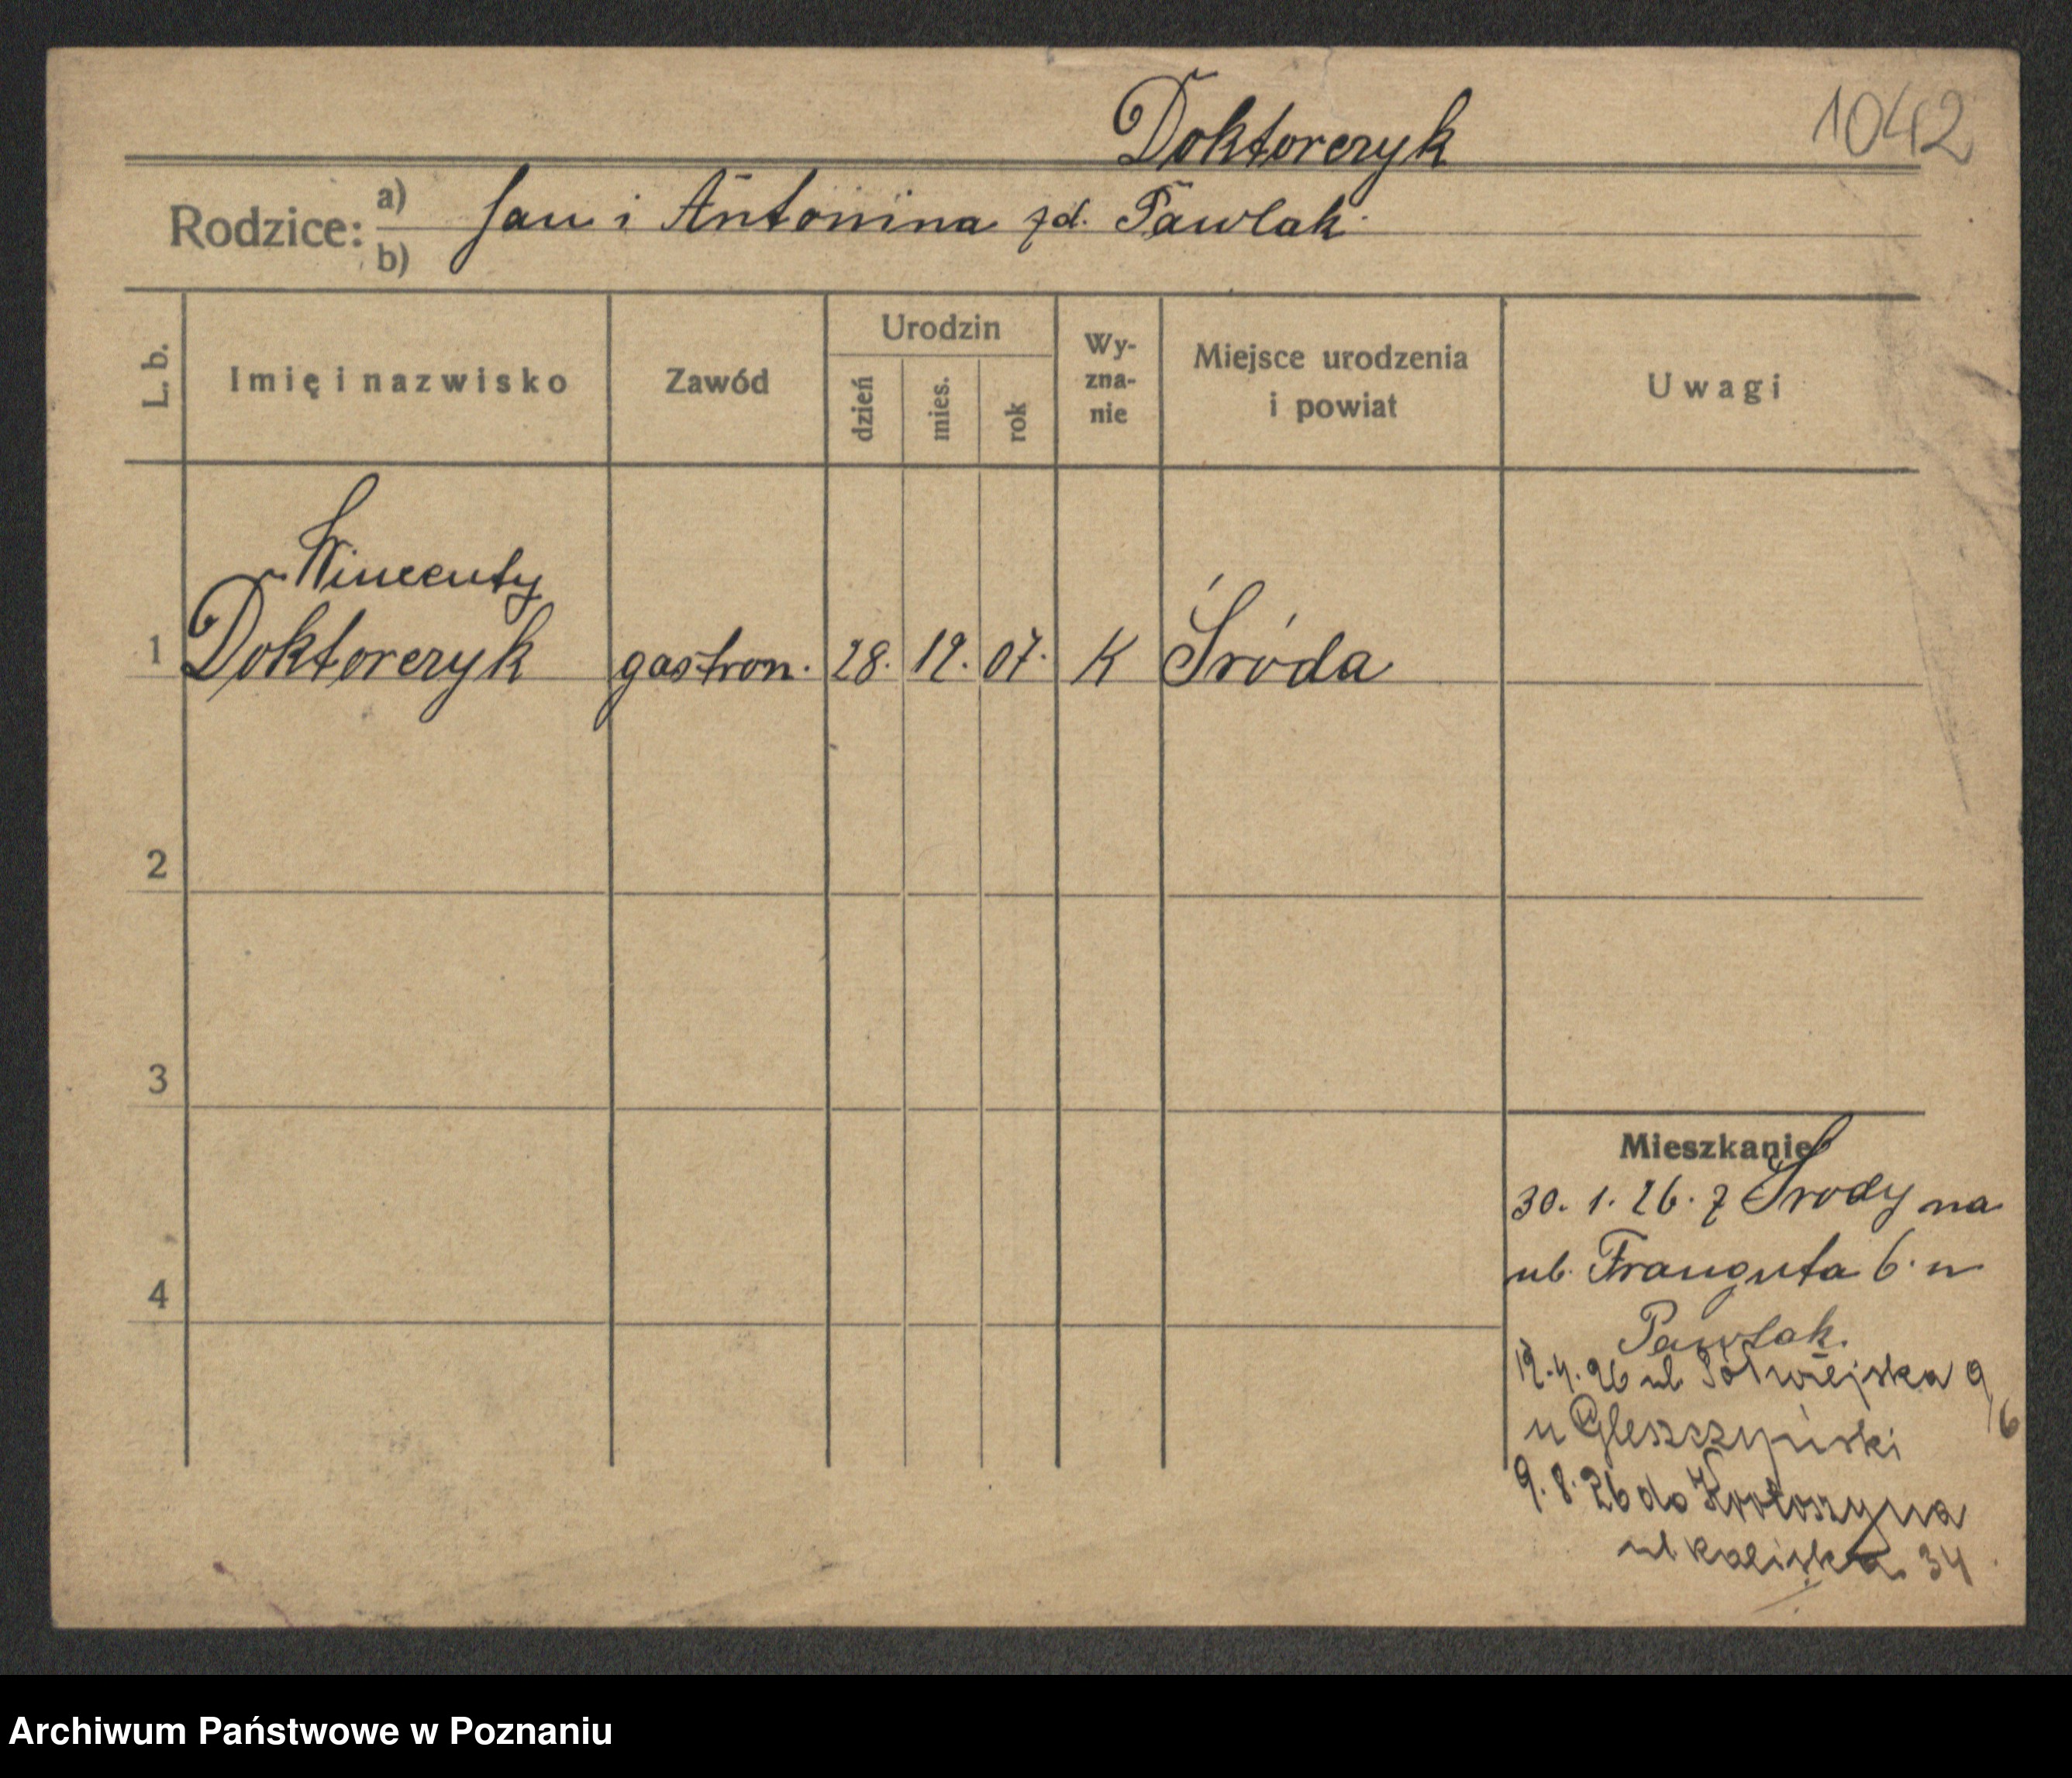 Doktorczyk
1042
Rodzice: a) b) Jan i Antonina zd. Pawlak
L. b.
Imię i nazwisko
Zawód
Urodzin
dzień
mies.
rok
Wy-
zna-
nie
Miejsce urodzenia
i powiat
Uwagi
Wincenty
1 Doktorczyk gastron. 28. 12. 07. K Środa
2
3
4
Mieszkanie
30. 1. 26. z Środy na
ul. Franguta 6. u
Pawlak.
12.4.26 ul Półwiejska 9/6
u Gleszczyński
9.8.26 do Krotoszyna
ul Kaliska 34
Archiwum Państwowe w Poznaniu